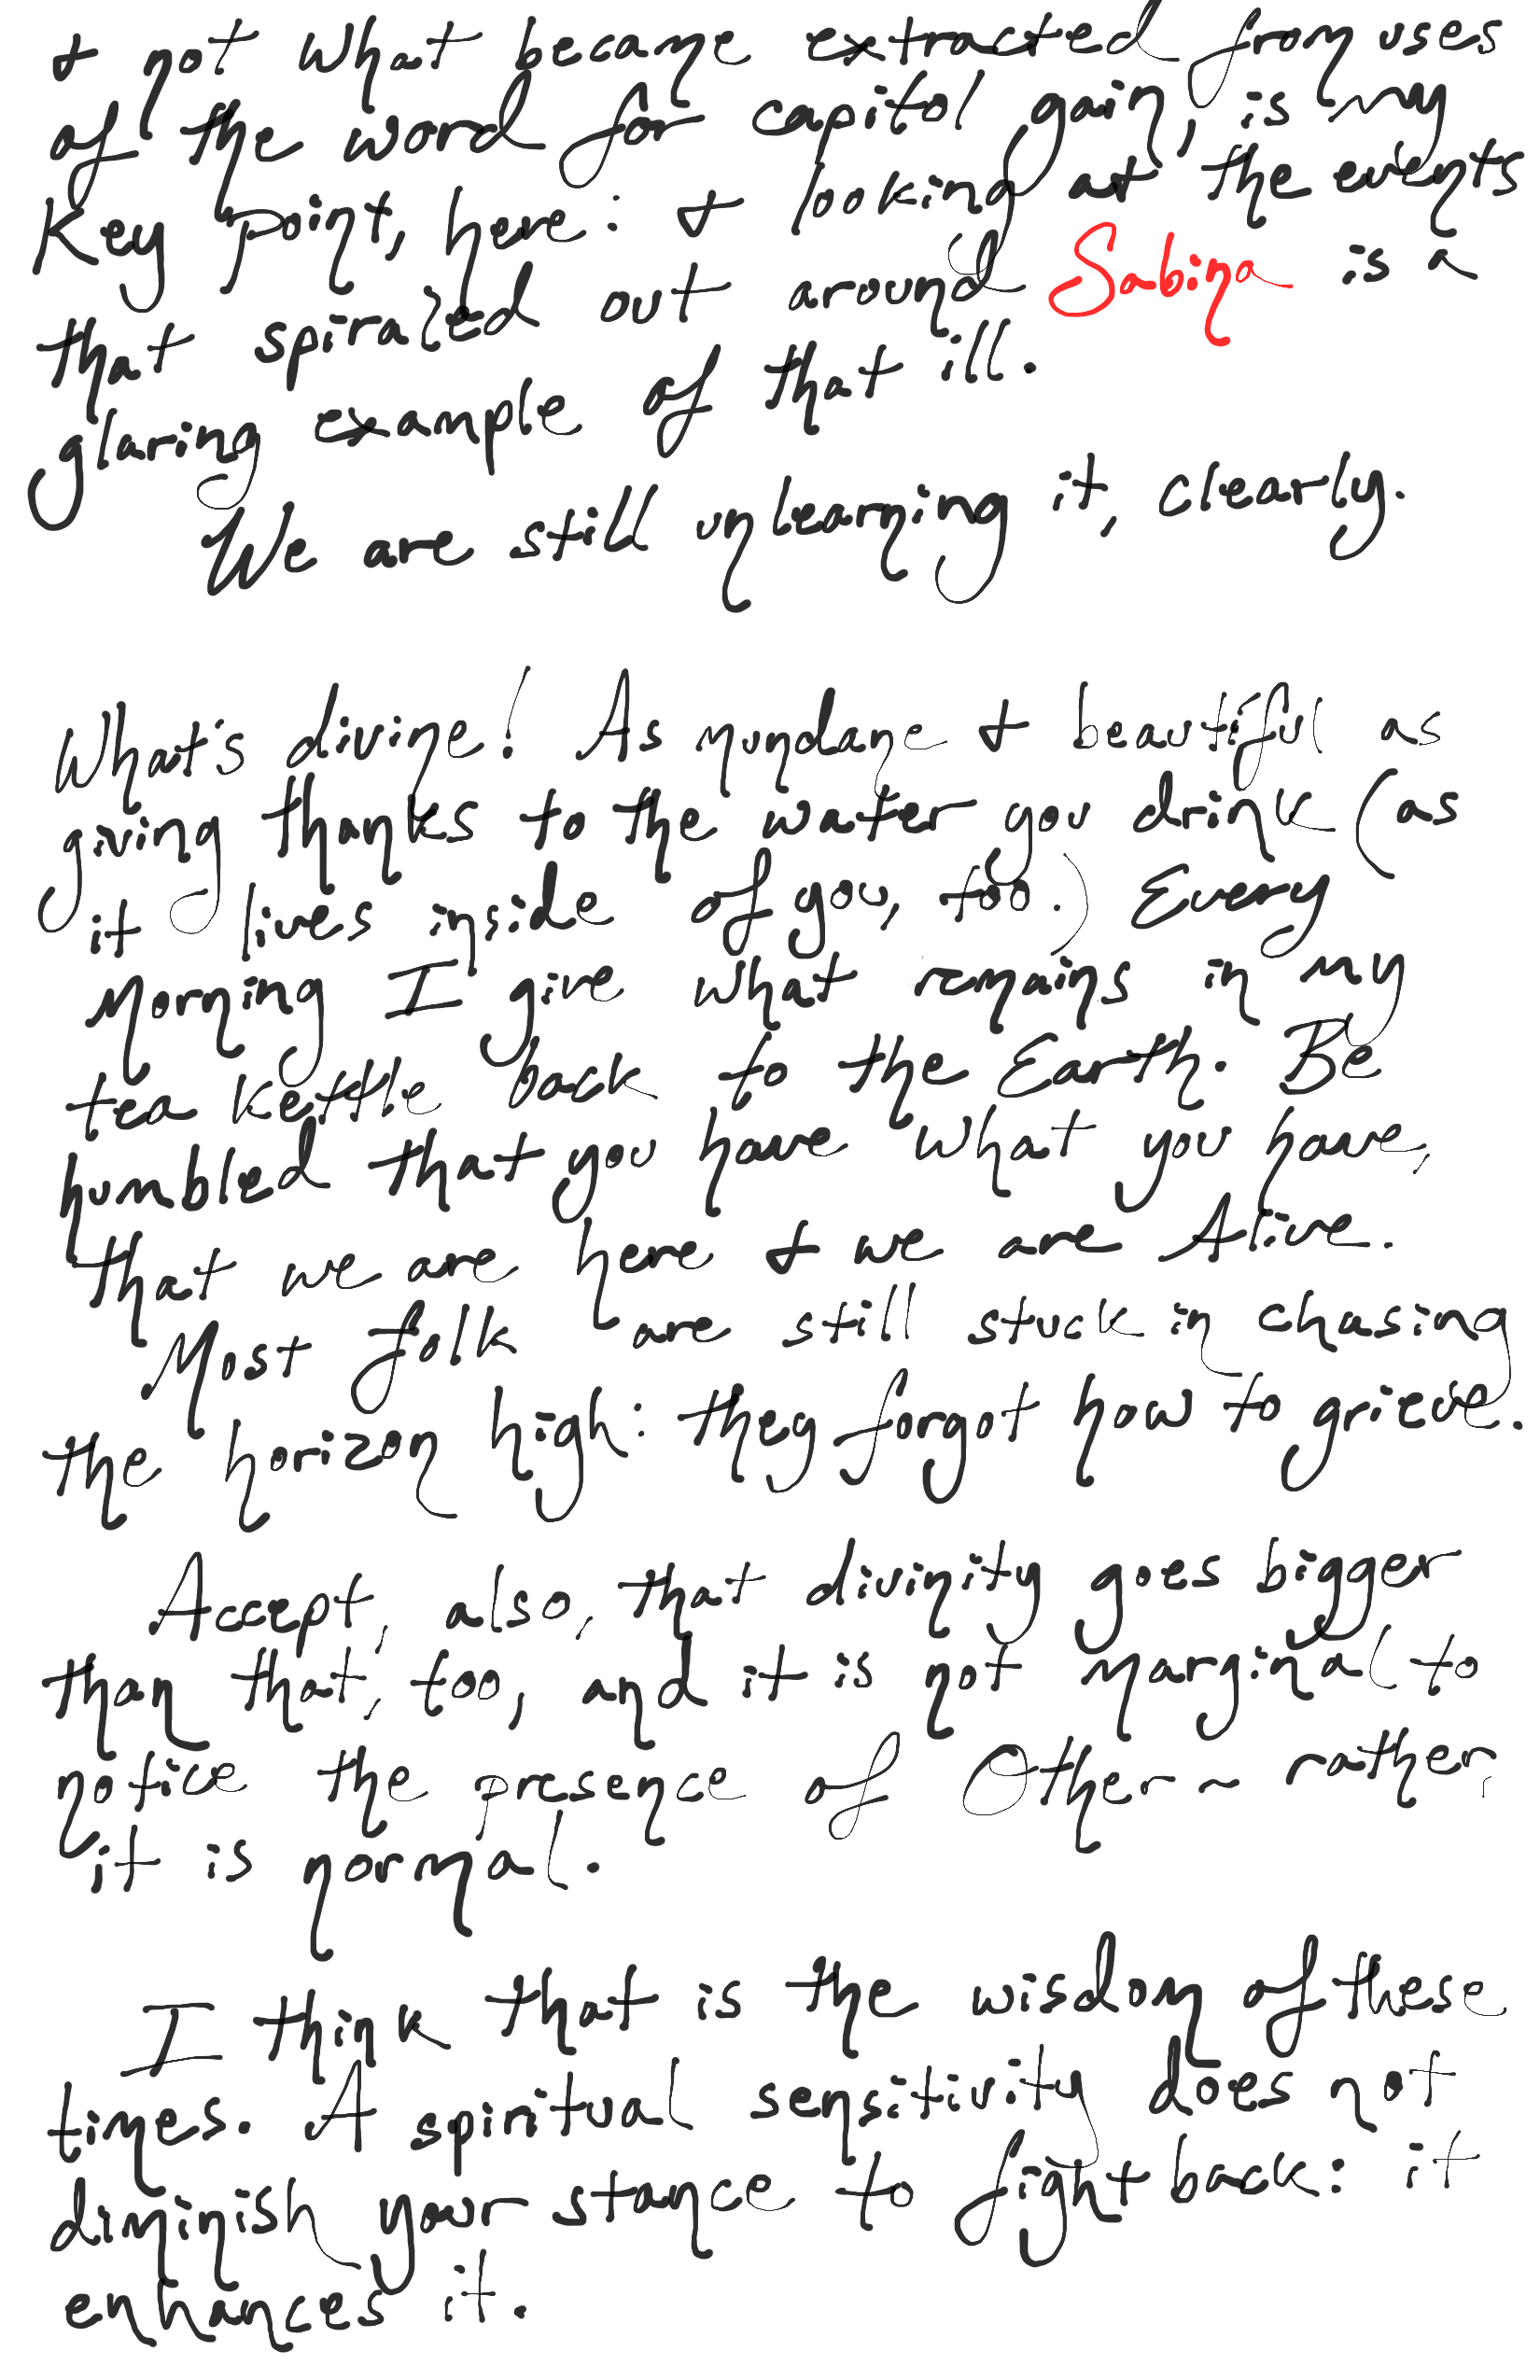 & not what became extracted from uses
of the word for capitol gain, is my
Key Point, here: & looking at the events
that spiraled out around Sabina is a
glaring example of that ill.
We are still unlearning it, clearly.
What's divine! As mundane & beautiful as
giving thanks to the water you drink (as
it lives inside of you, too.) Every
Morning I give what remains in my
tea kettle back to the Earth. Be
humbled that you have what you have,
that we are here & we are Alive.
Most folk are still stuck in chasing
the horizon high: they forgot how to grieve.
Accept, also, that divinity goes bigger
than that, too, and it is not marginal to
notice the presence of Other~~ rather,
it is normal.
I think that is the wisdom of these
times. A spiritual sensitivity does not
diminish your stance to fight back: it
enhances it.